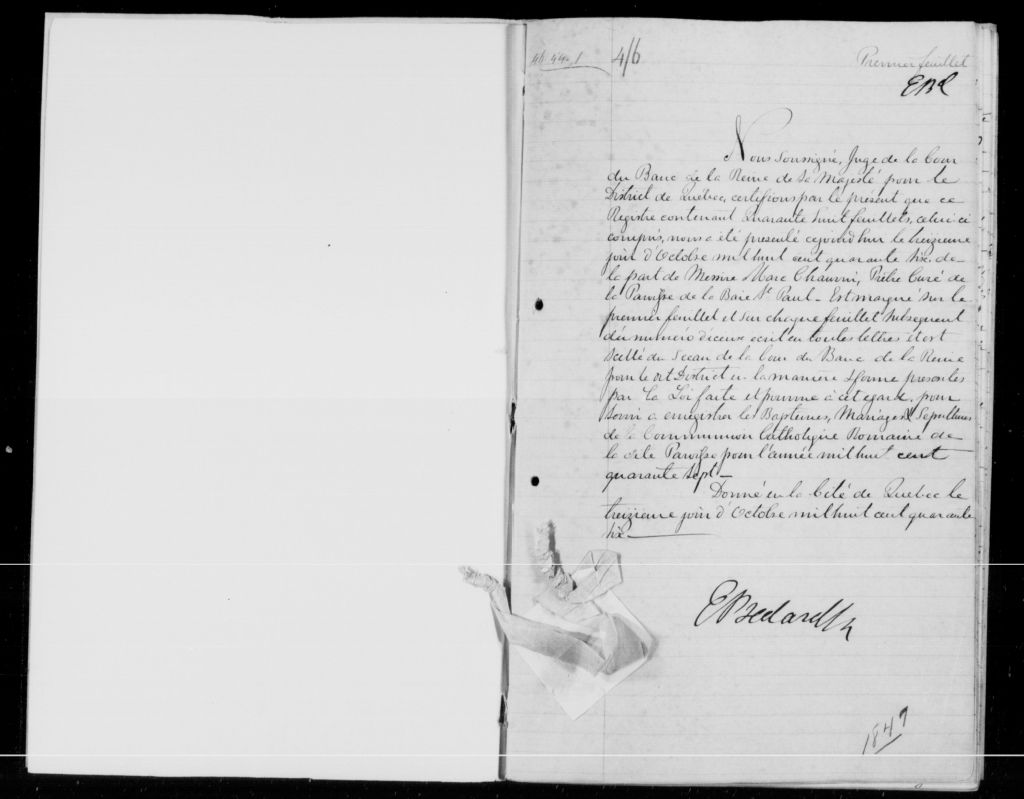 4/6
Premier feuillet
EBd
Nous soussigné, Juge de la Cour
du Banc de la Reine de Sa Majesté pour le
District de Québec, certifions par le présent que ce
Registre contenant Quarante huit feuillets, celui ci
compris, nous a été presenté cejourd'hui le treizieme
jour d'Octobre mil huit cent quarante six. de
la part de Messire Marc Chauvin, Prêtre Curé de
la Paroisse de la Baie St Paul - Est marqué sur le
premier feuillet et sur chaque feuillet subsequent
du numéro d'iceux ecrit en toutes lettres et est
scellé du Sceau de la Cour du Banc de la Reine
pour le dit District en la manière & forme prescrites
par la Loi faite et pourvue à cet egard. pour
servir a enregistrer les Baptemes, Mariages & Sepultures
de la Communion Catholique Romaine de
la dite Paroisse pour l'année mil huit cent
quarante sept -
Donné en la Cité de Quebec le
treizieme jour d'Octobre mil huit cent quarante
six
EBedard
1847